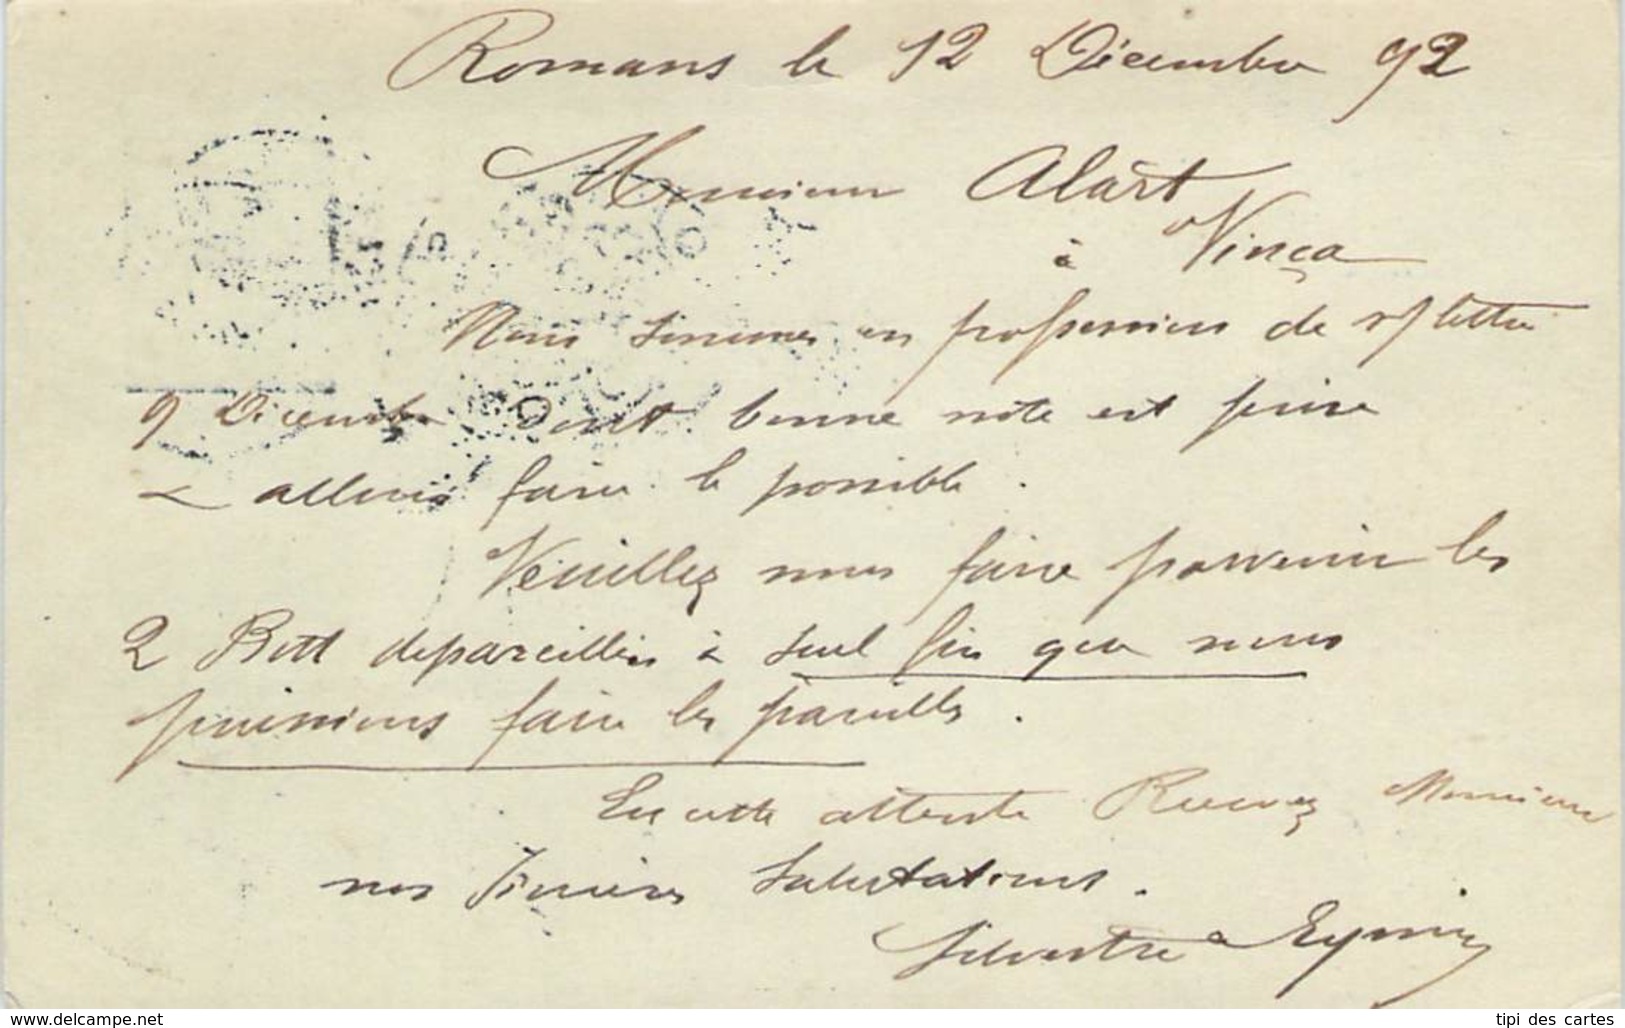 Romans le 12 Décembre 92
Monsieur Alart
à Vinça
Nous sommes en possession de v/ lettre
9 Décembre dont bonne note est prise
& allons faire le possible.
Veuillez nous faire parvenir les
2 Bott dépareillées à seul fin que nous
puissions faire les pareilles.
En cette attente Recevez Monsieur
nos Sincères Salutations.
Silvestre &
tipi des cartes
www.delcampe.net